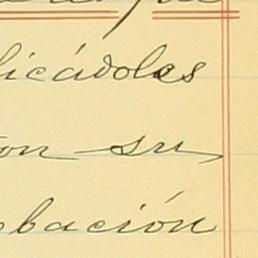 licádoles
on su
bación